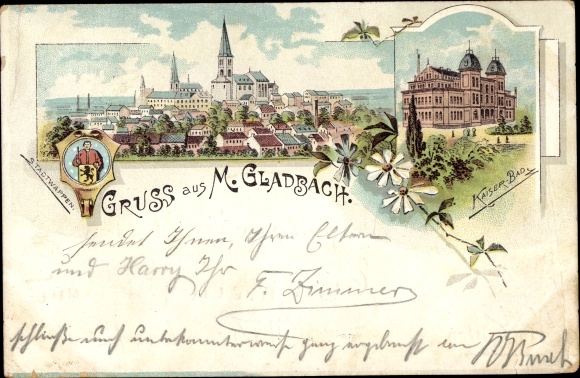 STADTWAPPEN.
KAISER-BAD.
GRUSS aus M. GLADBACH.
sendet Ihnen, Ihren Eltern
und Harry Ihr F. Zimmer
schließe mich unbekannterweise ganz ergebenst an